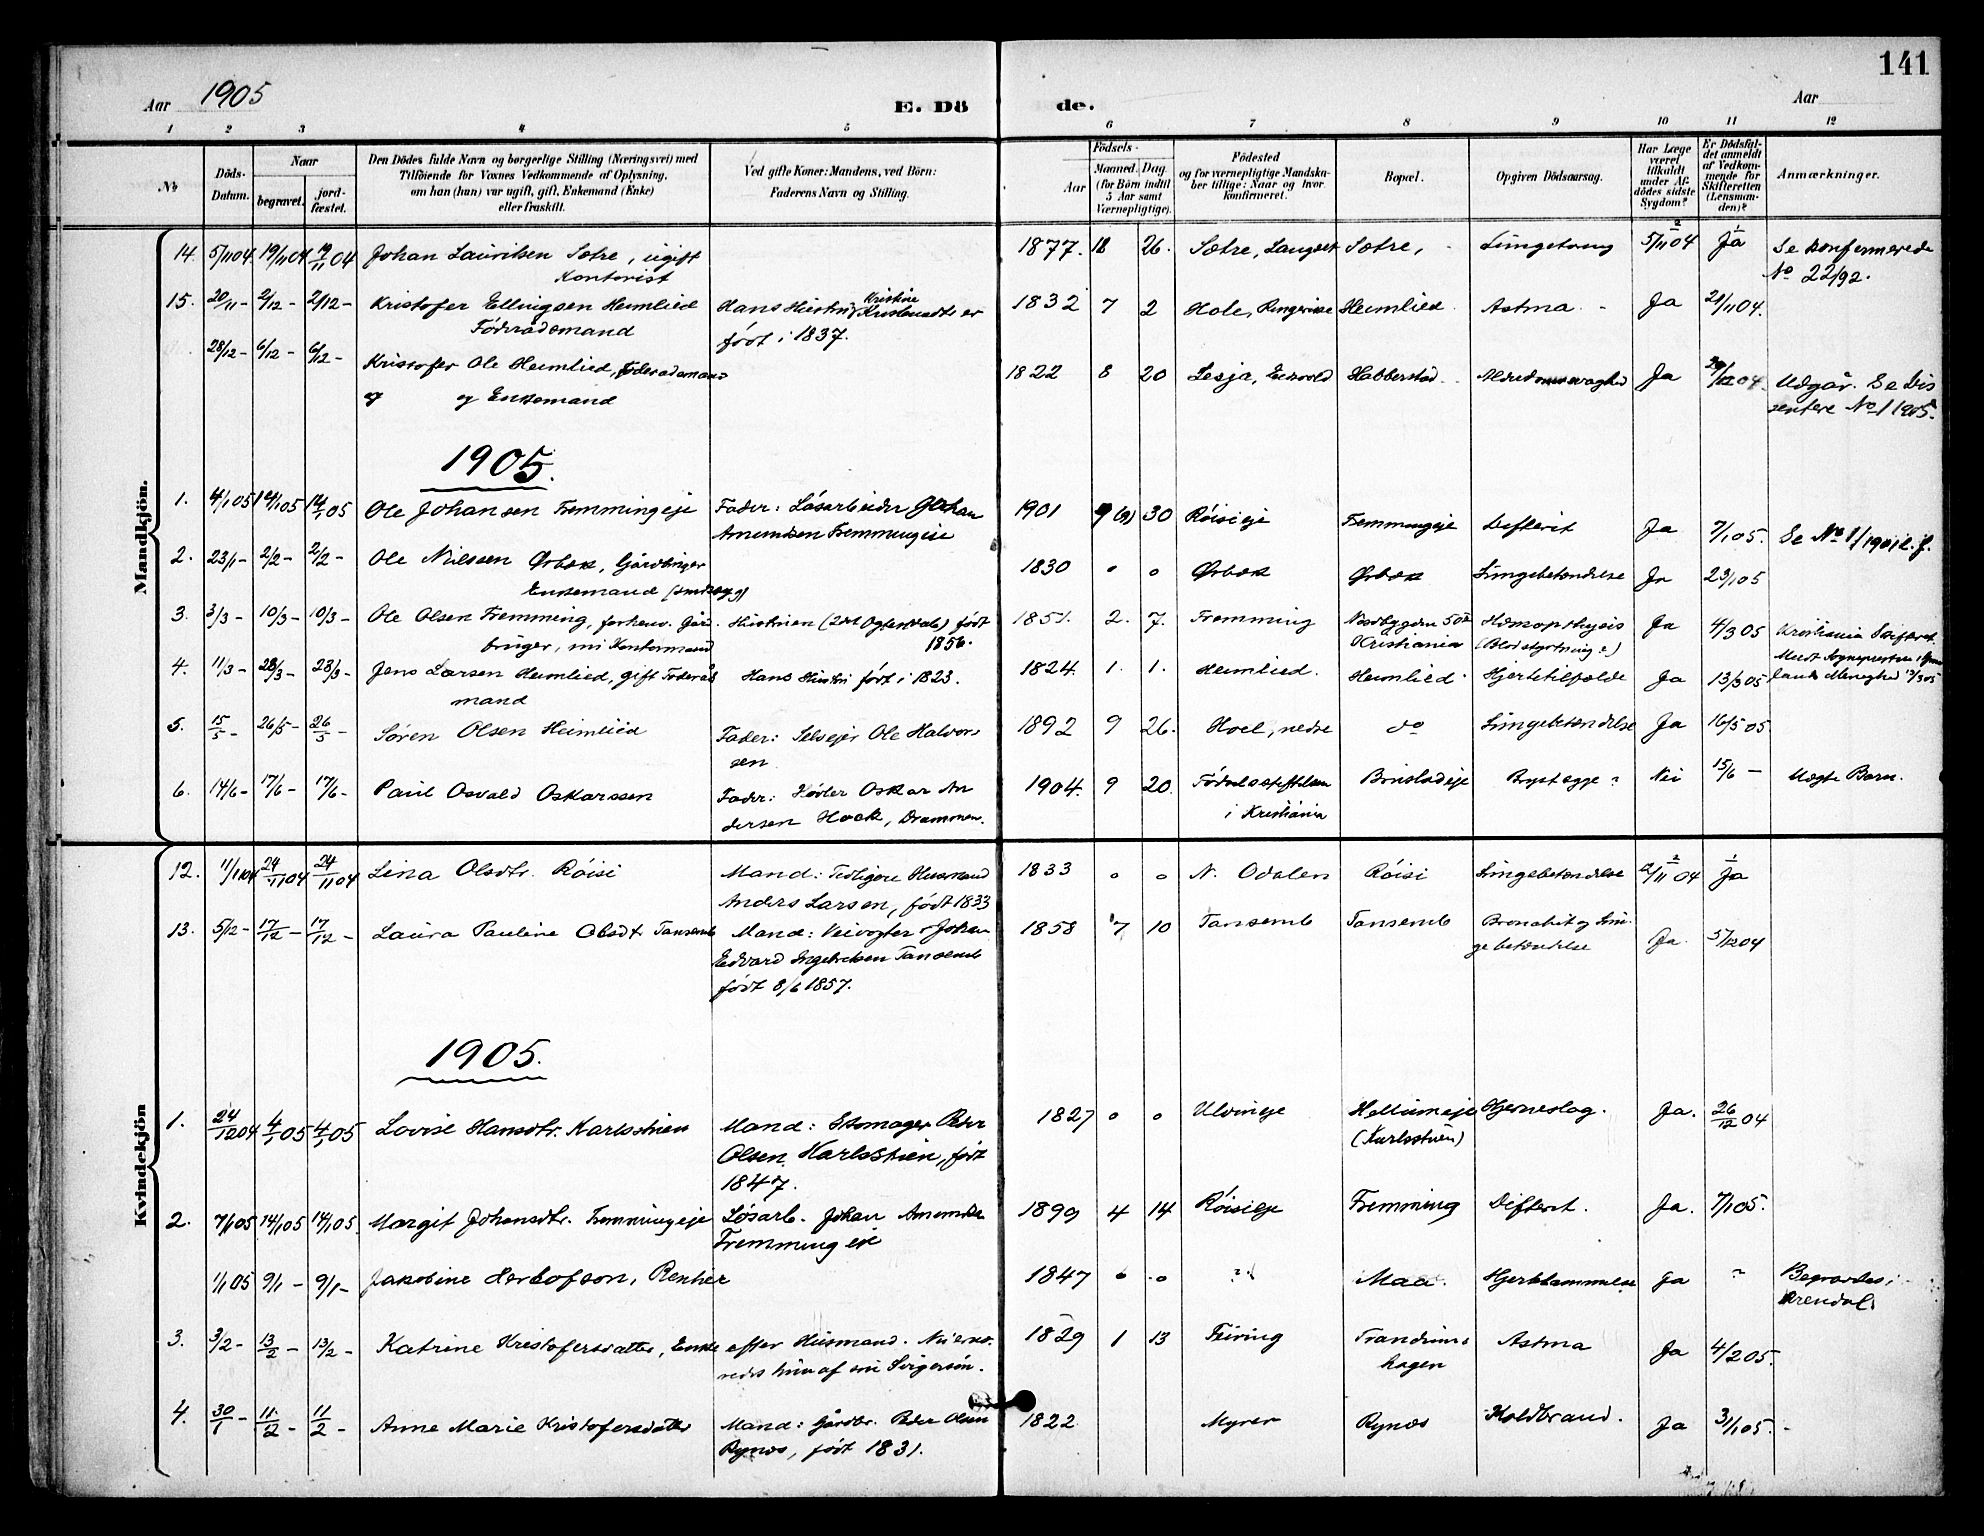 141
Aar 1905
E. Dö
de.
Aar
1 2 3 4 5 6 7 8 9 10 11 12
No
Döds-Datum.
Naar
begravet.
jord-fæstet.
Den Dödes fulde Navn og borgerlige Stilling (Næringsvei) med
Tilföiende for Voxnes Vedkommende af Oplysning,
om han (hun) var ugift, gift, Enkemand (Enke)
eller fraskilt.
Ved gifte Koner: Mandens, ved Börn:
Faderens Navn og Stilling.
Födsels-
Aar
Maaned. Dag
(for Börn indtil
5 Aar samt
Værnepligtige).
Födested
og for værnepligtige Mandska-
ber tillige: Naar og hvor
konfirmeret.
Bopæl.
Opgiven Dödsaarsag.
Har Læge
været
tilkaldt
under Af-
dödes sidste
Sygdom?
Er Dödsfal-
det anmeldt
af Vedkom-
mende for
Skifteretten
(Lensman-
den)?
Anmærkninger.
Mandkjön.
14. 5/11 04 19/11 04 19/11 04 Johan Lauritsen Sætre, ugift 1877. 26. Sætre, Langset Sætre, Lungetæring 5/11 04 Ja Se konfirmerede
Kontorist No 22/92.
15. 20/11 - 2/12 - 2/12 - Kristofer Ellingsen Heimlied Hans Hustru Kristine er 1832 7 2 Hole, Ringerike Heimlied. Astma - Ja 21/11 04.
Föderaadsmand født i 1837.
28/12 - 6/12 - 6/12 - Kristofer Ole Heimlied, 1822 8 20 Lesja, Habberstad Ja Udgår. Se Dis
og Enkemand sentere No 1 1905.
1905.
1. 4/1 05 14/1 05 14/1 05 Ole Johansen Fremmingeje Fader: Løsarbeider Johan 1901 9 30 Røisieje Fremmingeje Difterit Ja 7/1 05. Se No 1/1901
Amundsen Fremmingeie
2. 23/1 - 2/2 - 2/2 - Ole Nielsen Ørbæk, Gårdbruger 1830 o o Ørbæk Ørbæk Lungebetændelse Ja 23/1 05
Enkemand
3. 3/3 - 10/3 - 10/3 - Ole Olsen Fremming, forhenv. Gård- Hustruen født 1851. 2. 7. Fremming Ja 4/3 05 Kristiania Skifteret.
bruger, nu Kontormand 1856. Kristiania
4. 11/3 - 23/3 - 23/3 - Jens Larsen Heimlied, gift Föderåds Hans Hustru født i 1823. 1824. 1. 1. Heimlied. Heimlied. Hjertetilfælde Ja 13/3 05
mand
5. 15/5 - 26/5 - 26/5 - Søren Olsen Heimlied Fader: Selvejer Ole Halvor- 1892 9 26. Hoel, nedre do Lungebetændelse Ja 16/5 05
sen
6. 14/6 - 17/6 - 17/6 - Paul Osvald Oskarssen Fader: Høvler Oskar An 1904. 9 20. Fødselsstiftelsen Nei 15/6 - Uægte Barn.
dersen Hoek, Drammen. i Kristiania
Kvindekjön
12. 11/11 04 24/11 04 24/11 04 Lina Olsdtr. Røisi Mand: Tidligere Husmand 1833 o o N. Odalen Røisi Lungebetændelse 12/11 04 Ja
Anders Larsen, født 1833
13. 5/12 - 17/12 - 17/12 - Laura Pauline Olsdt. Tansemb Mand: Veivogter Johan 1858 7 10 Tansemb Tansemb Bronchit og Lun-
Edvard Ingebretsen Tansemb gebetændelse Ja. 5/12 04
født 8/6 1857.
1905.
1. 24/12 04 4/1 05 4/1 05 Lovise Hansdtr. Karlsstuen Mand: Skomager Peder 1827 o o Ulvineje Hellumeje Hjerneslag. Ja. 26/12 04
Olsen Karlsstuen, født (Karlsstuen)
1847.
2. 7/1 05 14/1 05 14/1 05. Margit Johansdtr. Fremmingeje Løsarb. Johan 1899 4 14 Røisieje Fremming Difterit. Ja. 7/1 05.
Fremming eie
1/1 05 9/1 - 9/1 - Jakobine Herlofson, Rentier 1847 o o ? Maa. Hjertelammelse Ja ? Begravedes i
Arendal.
3. 3/2 - 13/2 - 13/2 - Katrine Kristofersdatter, Enke efter Husmand. 1829 1 13 Feiring Trandum- Astma Ja 4/2 05.
hun af sin Svigersøn. hagen
4. 30/1 - 11/2 - 11/2 - Anne Marie Kristofersdatter Mand: Gårdbr. Peder Olsen 1822 Myrer Rynes Koldbrand. Ja 31/1 05.
Rynes, født 1831.